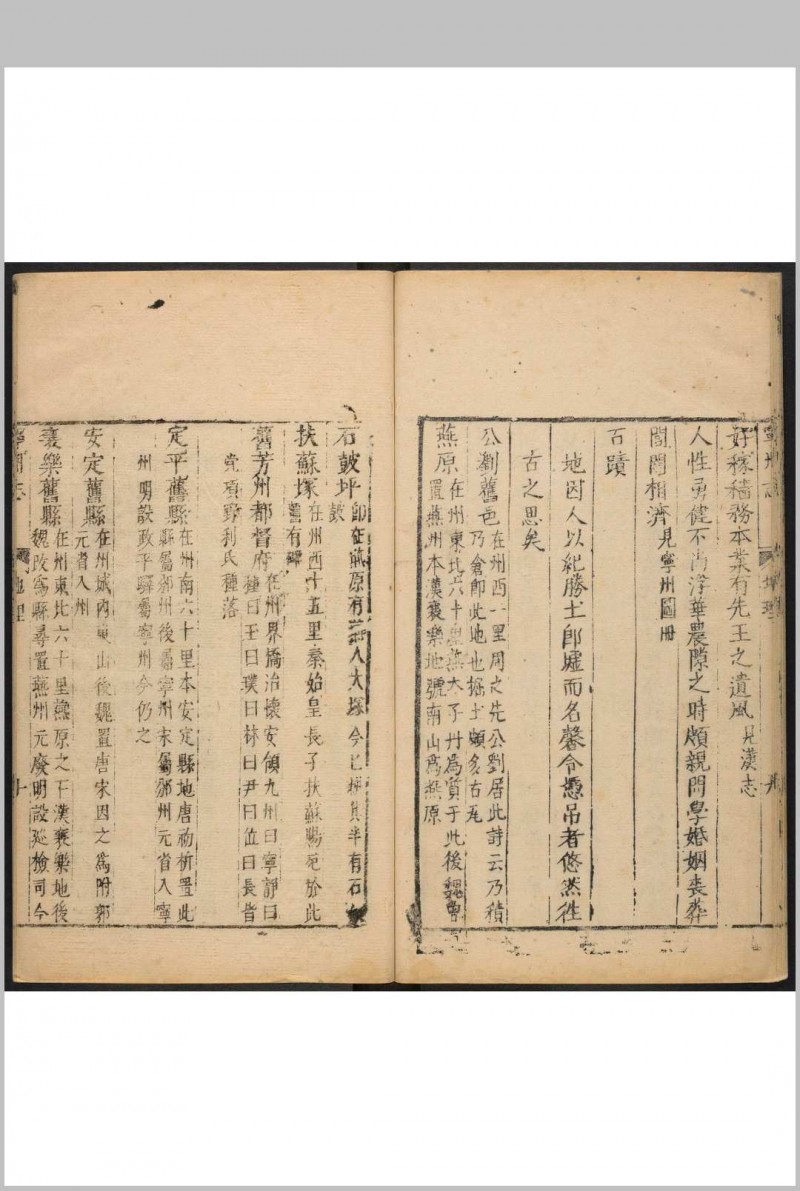 寧州志
地理
好稼穡務本業有先王之遺風見漢志
人性勇健不尚浮華農隙之時頗親問學婚姻喪葬
閭閻相濟見寧州圖冊
古蹟
地因人以紀勝土郎墟而名馨令憑吊者悠然往
古之思矣
公劉舊邑在州西一里周之先公劉居此詩云乃積
乃倉即此地也掘土頗多古瓦
燕原在州東北六十里燕太子丹爲質于此後魏曾
置燕州本漢襄樂地號南山爲燕原
石鼓坪即在燕原有人大塚今已摧其半有石
鼓
扶蘇塚在州西十五里秦始皇長子扶蘇賜死於此
舊有碑
舊芳州都督府在州界撟治懷安領九州曰寧靜曰
種曰王曰璞曰林曰尹曰位曰長皆
党項野利氏種落
定平舊縣在州南六十里本安定縣地唐初析置此
縣屬邠州後屬寧州宋屬邠州元省入寧
州明設政平驛屬寧州今仍之
安定舊縣在州城內山後魏置唐宋因之爲附郭
元省入州
襄樂舊縣在州東北六十里燕原之下漢襄樂地後
魏改爲縣尋置燕州元廢明設巡檢司今
寧州志
地里
十